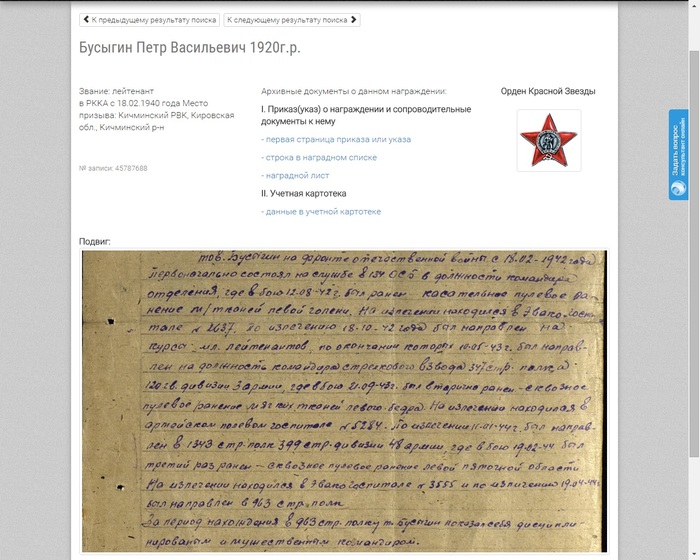 К предыдущему результату поиска К следующему результату поиска
Бусыгин Петр Васильевич 1920г.р.
Звание: лейтенант
в РККА с 18.02.1940 года Место
призыва: Кичминский РВК, Кировская
обл., Кичминский р-н
№ записи: 45787688
Архивные документы о данном награждении:
I. Приказ(указ) о награждении и сопроводительные
документы к нему
- первая страница приказа или указа
- строка в наградном списке
- наградной лист
II. Учетная картотека
- данные в учетной картотеке
Орден Красной Звезды
Задать вопрос
консультант онлайн
Подвиг:
тов. Бусыгин на фронте отечественной войны с 18-02-1942 года
первоначально состоял на службе в 134 ОСб в должности командира
отделения, где в бою 12-08-42 г. был ранен - касательное пулевое ра-
нение м/тканей левой голени. На излечении находился в Эвакогоспи-
тале № 2637. По излечению 18-10-42 года был направлен на
курсы мл. лейтенантов, по окончании которых 10-05-43 г. был направ-
лен на должность командира стрелкового взвода 347 стр. полка
120 гв. дивизии 3 армии, где в бою 21-09-43 г. был вторично ранен - сквозное
пулевое ранение мягких тканей левого бедра. На излечении находился в
армейском полевом госпитале № 5284. По излечении 11-01-44 г. был направ-
лен в 1343 стр. полк 399 стр. дивизии 48 армии, где в бою 19-02-44 был
третий раз ранен - сквозное пулевое ранение левой пяточной области
На излечении находился в Эвакогоспитале № 3555 и по излечению 19-04-44г.
был направлен в 963 стр. полк
За период нахождения в 963 стр. полку т. Бусыгин показал себя дисципли
нированым и мужественным командиром.